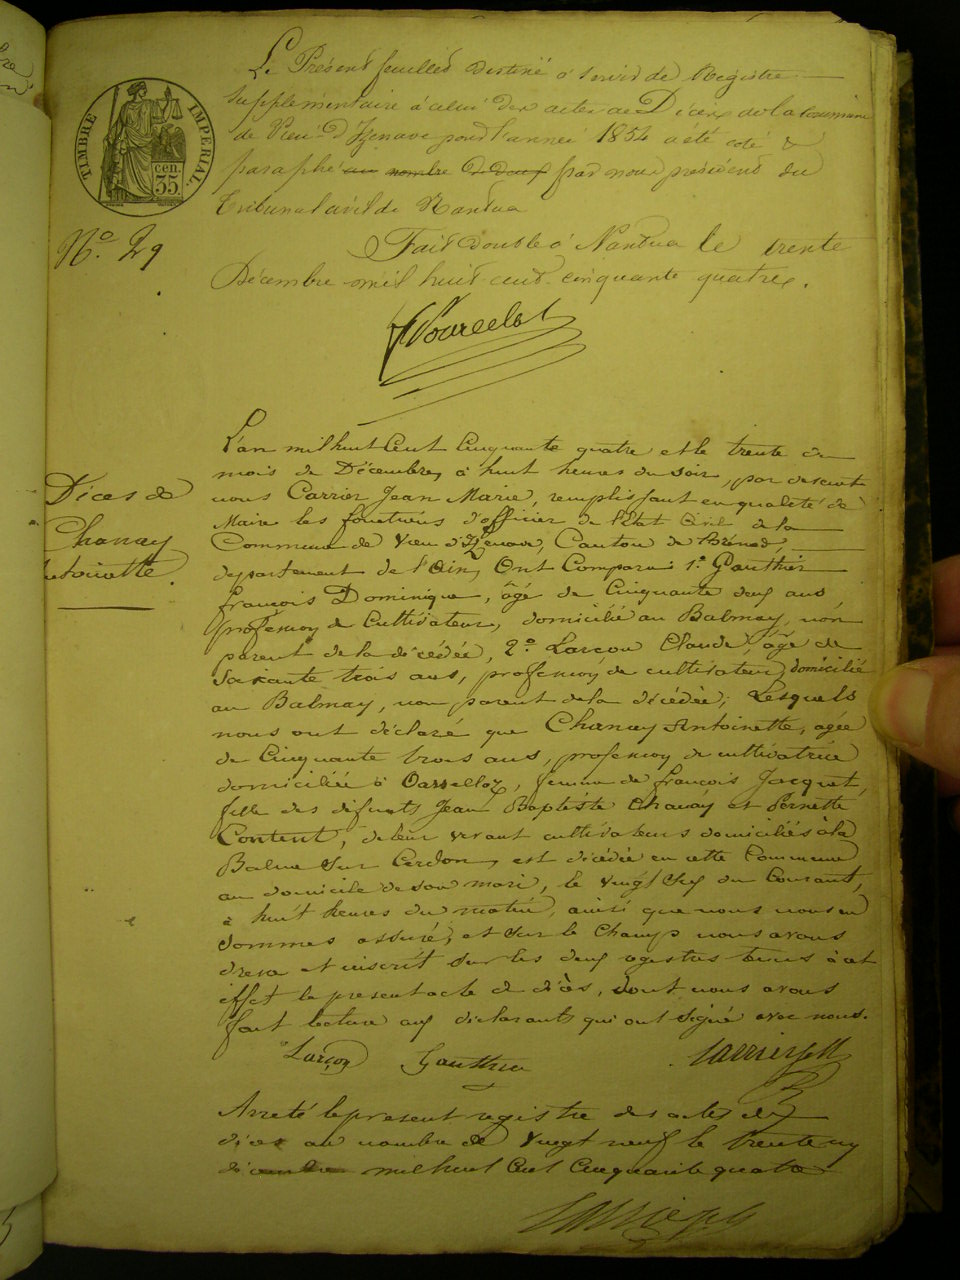 Le Présent feuillet destiné à servir de Registre
supplémentaire à celui des actes de Décès de la Commune
de Vieu-D'Izenave pour l'année 1854 a été coté &
paraphé au nombre de deux par nous président du
Tribunal civil de Nantua
Fait double à Nantua le trente
Décembre mil huit cent cinquante quatre.
TIMBRE IMPERIAL.
35 cen.
No. 29
Décès de
Chanay
Antoinette.
L'an mil huit Cent Cinquante quatre et le trente du
mois de Décembre, à huit heures du soir, par devant
nous Carrier Jean Marie, remplissant en qualité de
Maire les fonctions d'officier de l'Etat Civil de la
Commune de Vieu d'Izenave, Canton de Brénod,
departement de l'Ain, Ont Comparu 1º Gauthier
françois Dominique, âgé de Cinquante deux ans
profession de Cultivateur, domicilié au Balmay, non
parent de la décédée, 2º Larçon Claude, âgé de
Soixante trois ans, profession de cultivateur, domicilié
au Balmay, non parent de la décédée; Lesquels
nous ont déclaré que Chanay Antoinette, agée
de Cinquante trois ans, profession de cultivatrice
domiciliée à, femme de françois Jacquet,
fille des défunts Jean Baptiste Chanay et Pernette
Content, de leur vivant cultivateurs domiciliés à la
Balme Sur Cerdon, est décédée en cette Commune
au domicile de son mari, le vingt du Courant,
à huit heures du matin, ainsi que nous nous en
Sommes assuré, et Sur le Champ nous avons
dressé et inscrit Sur les deux registres tenus à cet
effet le present acte de décès, dont nous avons
fait lecture aux déclarants qui ont Signé avec nous.
Larçon Gauthier Carrier J M
Arrêté le present registre des actes de
décès au nombre de vingt neuf le trente un
décembre mil huit Cent Cinquante quatre
Carrier